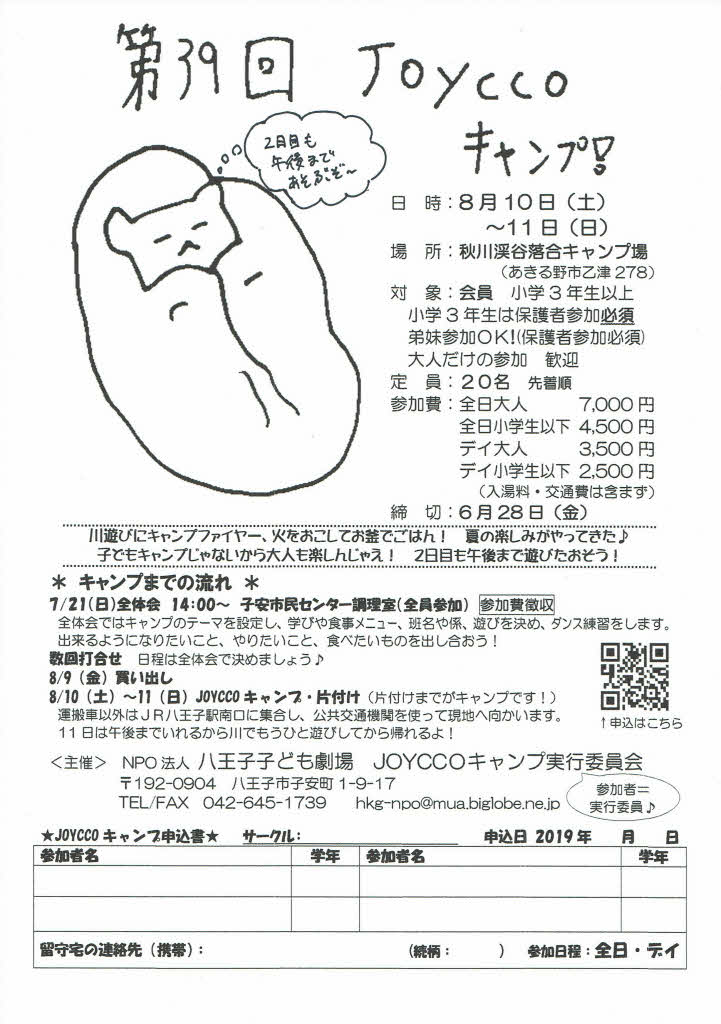 第39回 JOYCCO
キャンプ!
2日目も
午後まで
あそぶぞ～
日　時：8月10日（土）
～11日（日）
場　所：秋川渓谷落合キャンプ場
（あきる野市乙津278）
対　象：会員　小学3年生以上
小学3年生は保護者参加必須
弟妹参加OK!(保護者参加必須)
大人だけの参加　歓迎
定　員：20名　先着順
参加費：全日大人　7,000円
全日小学生以下 4,500円
デイ大人　3,500円
デイ小学生以下 2,500円
（入湯料・交通費は含まず）
締　切：6月28日（金）
川遊びにキャンプファイヤー、火をおこしてお釜でごはん！　夏の楽しみがやってきた♪
子どもキャンプじゃないから大人も楽しんじゃえ！　2日目も午後まで遊びたおそう！
＊ キャンプまでの流れ ＊
7/21(日)全体会 14:00～ 子安市民センター調理室(全員参加) 参加費徴収
全体会ではキャンプのテーマを設定し、学びや食事メニュー、班名や係、遊びを決め、ダンス練習をします。
出来るようになりたいこと、やりたいこと、食べたいものを出し合おう！
数回打合せ　日程は全体会で決めましょう♪
8/9（金）買い出し
8/10（土）～11（日）JOYCCOキャンプ・片付け（片付けまでがキャンプです！）
運搬車以外はJR八王子駅南口に集合し、公共交通機関を使って現地へ向かいます。
11日は午後までいれるから川でもうひと遊びしてから帰れるよ！
↑申込はこちら
＜主催＞　NPO法人 八王子子ども劇場　JOYCCOキャンプ実行委員会
〒192-0904　八王子市子安町1-9-17
TEL/FAX　042-645-1739　hkg-npo@mua.biglobe.ne.jp
参加者＝
実行委員♪
★JOYCCOキャンプ申込書★　サークル:　申込日 2019年　月　日
参加者名　学年　参加者名　学年
留守宅の連絡先（携帯）：　（続柄：　）　参加日程：全日・デイ